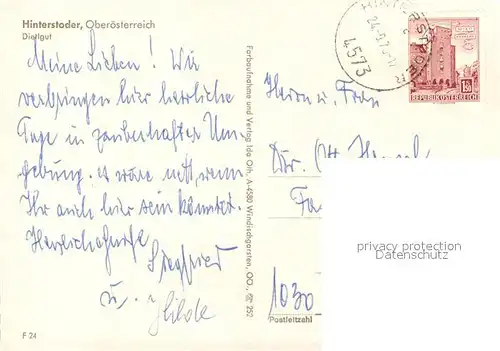 Hinterstoder, Oberösterreich
Dietlgut
Meine Lieben! Wir
verbringen hier herrliche
Tage in zauberhafter Um-
gebung. Es wäre nett, wenn
Ihr auch hier sein könntet.
Herzlichst grüßt
Siegfried
u. Hilde
F 24
Farbaufnahme und Verlag Ida Oth, A-4580 Windischgarsten, OÖ., ☎ 252
HINTERSTODER
4573
1.50
REPUBLIK ÖSTERREICH
Herrn u. Frau
Dr.
1030
Postleitzahl
privacy protection
Datenschutz